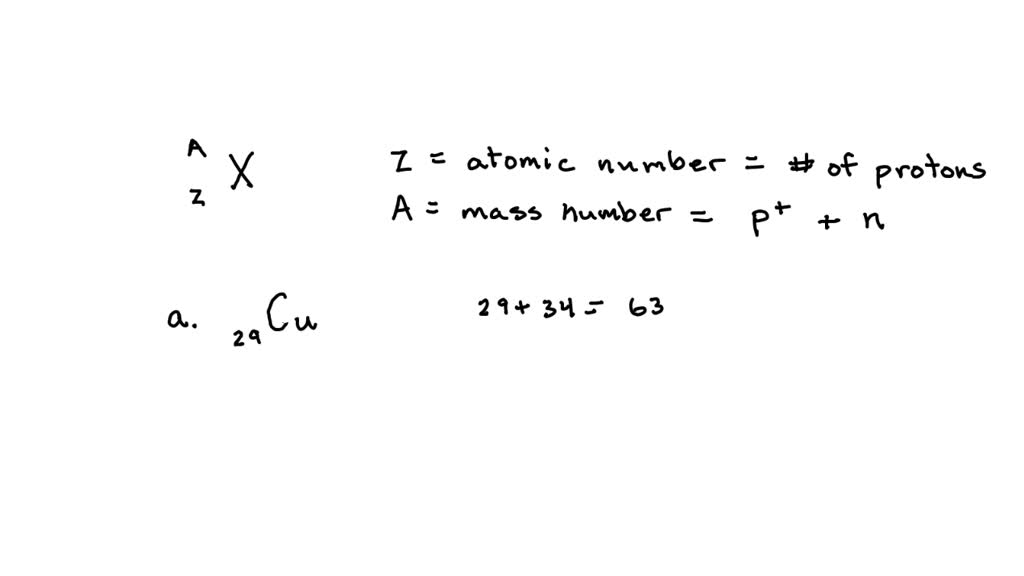 A
Z X
Z = atomic number = # of protons
A = mass number = p+ + n
a. 29Cu 29 + 34 = 63